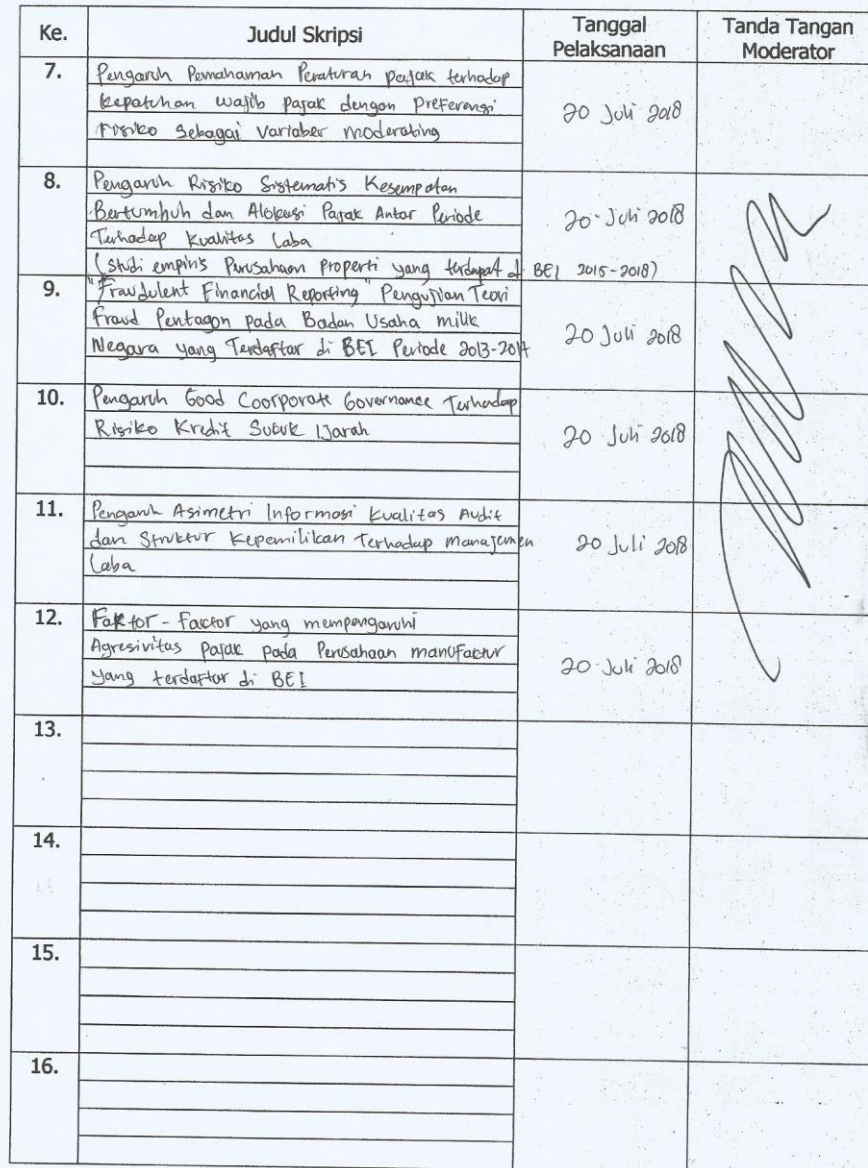 Ke. Judul Skripsi Tanggal Pelaksanaan Tanda Tangan Moderator
7. Pengaruh Pemahaman Peraturan pajak terhadap
kepatuhan wajib pajak dengan preferensi
risiko sebagai variaber moderating
20 Juli 2018
8. Pengaruh Risiko Sistematis Kesempatan
Bertumbuh dan Alokasi Pajak Antar Periode
Terhadap Kualitas Laba
(studi empiris Perusahaan properti yang terdapat di BEI 2015-2018)
20 Juli 2018
9. "Fraudulent Financial Reporting" Pengujian Teori
Fraud Pentagon pada Badan Usaha milik
Negara yang Terdaftar di BEI Periode 2013-2017
20 Juli 2018
10. Pengaruh Good Coorporate Governance Terhadap
Risiko Kredit Sukuk Ijarah
20 Juli 2018
11. Pengaruh Asimetri Informasi Kualitas Audit
dan Struktur Kepemilikan Terhadap manajemen
Laba
20 Juli 2018
12. Faktor-Factor yang mempengaruhi
Agresivitas pajak pada Perusahaan manufaktur
yang terdaftar di BEI
20 Juli 2018
13.
14.
15.
16.